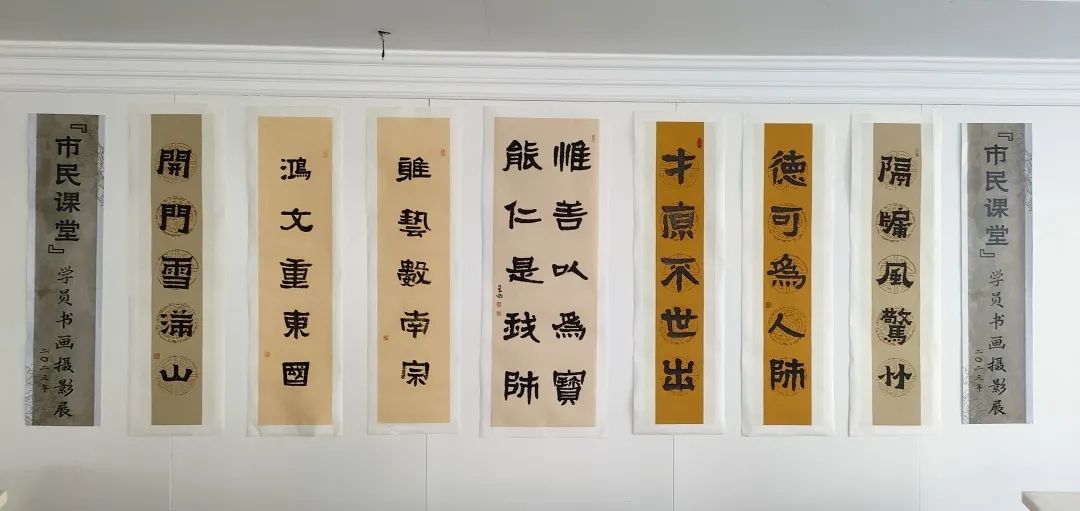 『市民课堂』
学员书画摄影展
二〇二三年
隔牖風驚竹
徳可為人師
才原不世出
惟善以為寶
能仁是我師
雅藝數南宗
鴻文重東國
開門雪滿山
『市民课堂』
学员书画摄影展
二〇二三年